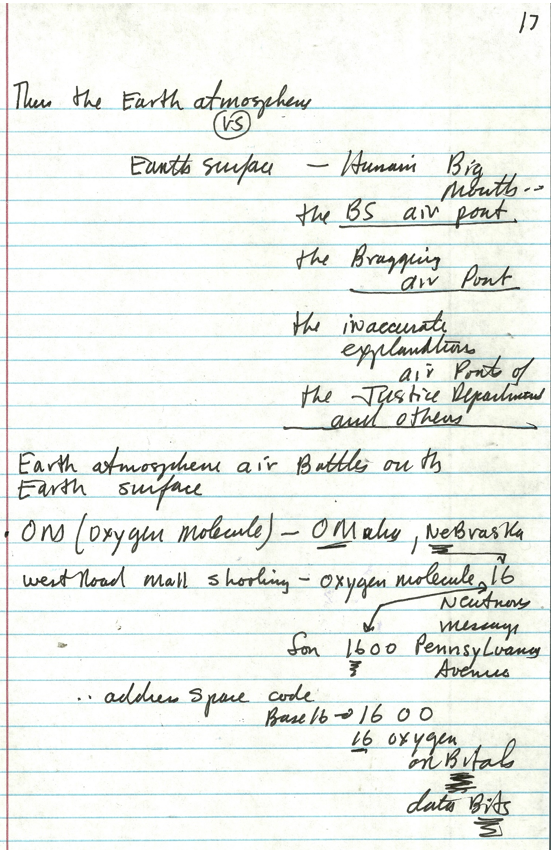 17
Thus the Earth atmosphere
VS
Earth surface — Human Big
mouth...
the BS air port.
the Bragging
air Port
the inaccurate
explanations
air Ports of
the Justice Department
and others
Earth atmosphere air Battles on th
Earth surface
. OM (oxygen molecule) — OMaha, NeBraska
westRoad mall shooting — oxygen molecule, 16
Neutrons
message
for 1600 Pennsylvania
Avenue
.. address space code
Base 16 → 16 00
16 oxygen
orBitals
data Bits